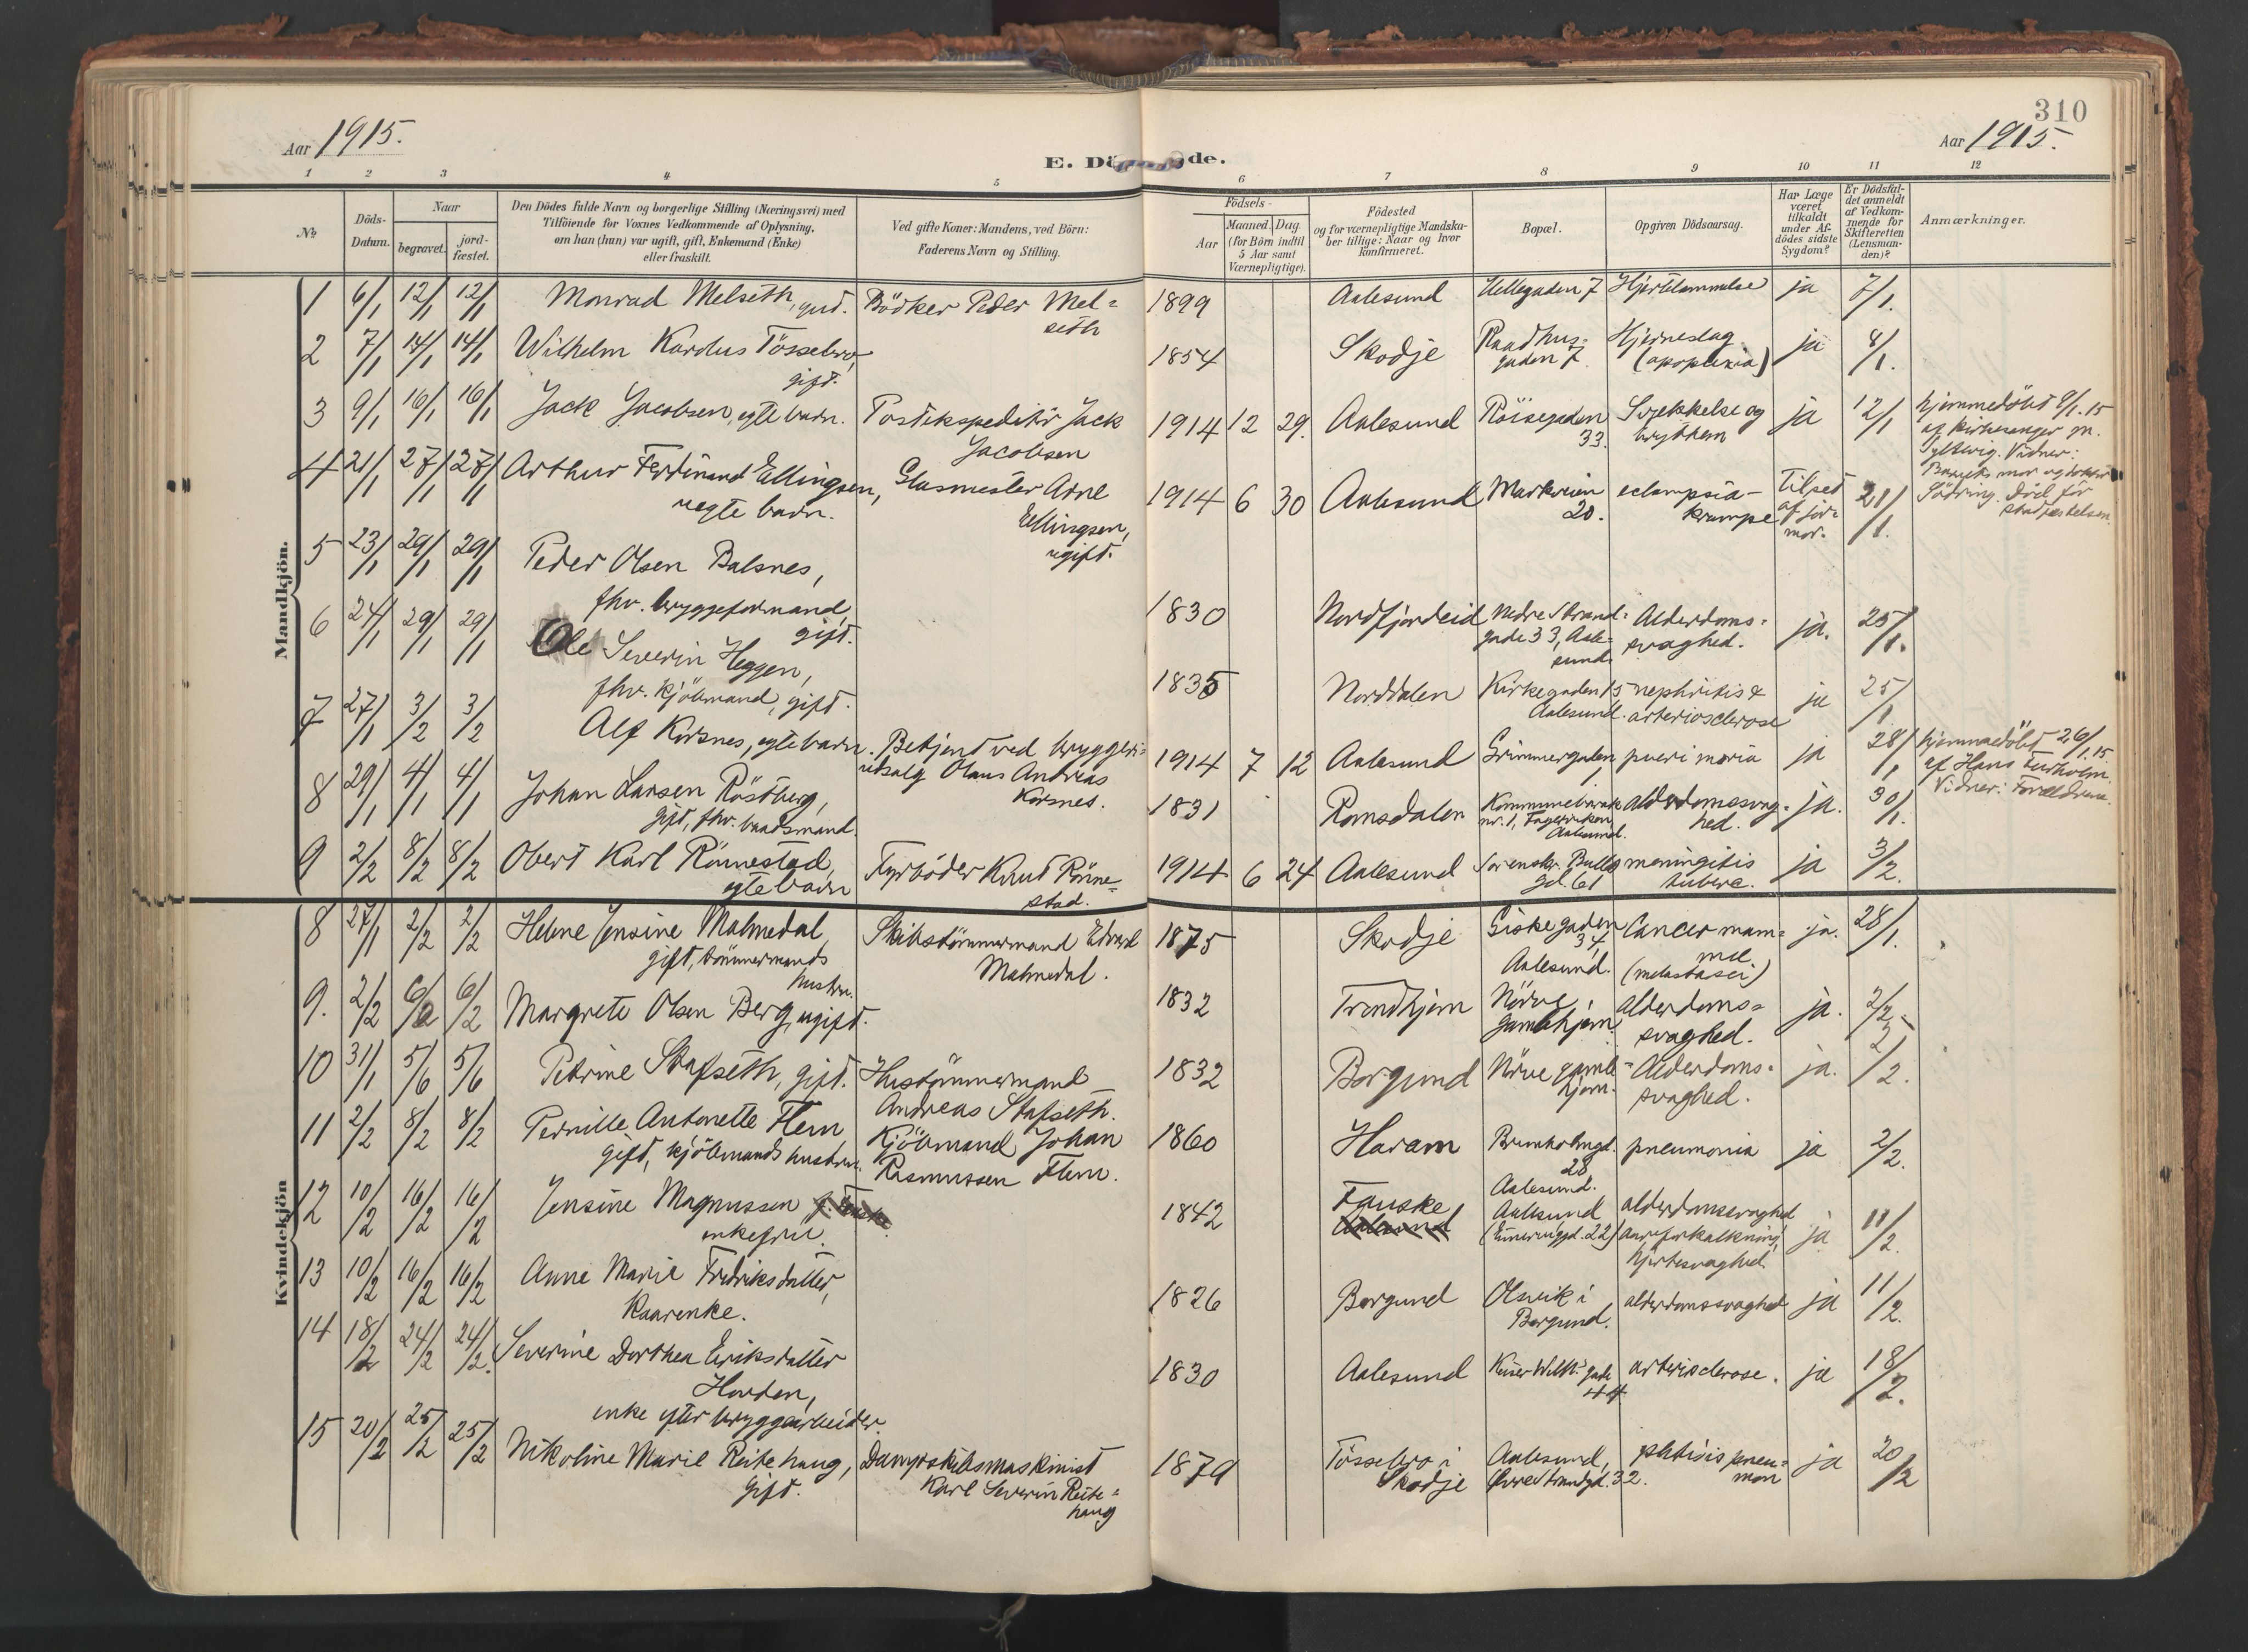 310
Aar 1915.
Aar 1915.
E. Dö de.
1 2 3 4 5 6 7 8 9 10 11 12
No.
Döds-
Datum.
Naar
begravet.
jord-
fæstet.
Den Dödes fulde Navn og borgerlige Stilling (Næringsvei) med
Tilföiende for Voxnes Vedkommende af Oplysning,
om han (hun) var ugift, gift, Enkemand (Enke)
eller fraskilt.
Ved gifte Koner: Mandens, ved Börn:
Faderens Navn og Stilling.
Födsels-
Aar
Maaned. Dag.
(for Börn indtil
5 Aar samt
Værnepligtige).
Födested
og for værnepligtige Mandska-
ber tillige: Naar og hvor
konfirmeret.
Bopæl.
Opgiven Dödsaarsag.
Har Læge
været
tilkaldt
under Af-
dödes sidste
Sygdom?
Er Dödsfal-
det anmeldt
af Vedkom-
mende for
Skifteretten
(Lensman-
den)?
Anmærkninger.
Mandkjön.
1 6/1 12/1 12/1 Monrad Melseth, Bödker Peder Mel=
seth
1899 Aalesund Hjertelammelse ja 7/1.
2 7/1 14/1 14/1 Wilhelm Kardus Tössebro,
gift.
1854 Skodje Raadhus-
gaden 7. Hjerneslag
(apoplexia) ja 8/1.
3 9/1 16/1 16/1 Jack Jacobsen, egte barn. Postekspeditör Jack
Jacobsen
1914 12 29. Aalesund Röisegaden
33. Svekkelse og
ja 12/1 hjemmedöbt 9/1.15
af kirkesanger
Vidner:
Barnets mor og doktor
Död för
stadfestelsen.
4 21/1 27/1 27/1 Arthur Ferdinand Ellingsen,
uegte barn.
Glasmester Arne
Ellingsen,
ugift.
1914 6 30 Aalesund Markveien
20. eclampsia -
krampe Tilset
af jor=
mor. 21/1.
5 23/1 29/1 29/1 Peder Olsen Balsnes,
fhv. bryggeformand,
gift.
1830 Nordfjordeid Nedre Strand=
gade 33, Aale-
sund. Alderdoms-
svaghed. ja. 25/1.
6 24/1 29/1 29/1 Ole Severin Heggen,
fhv. kjöbmand, gift.
1835 Norddalen Kirkegaden 15
Aalesund. nephritis &
arteriosclerose ja 25/1
7 27/1 3/2 3/2 Alf Korsnes, egte barn. Betjent ved bryggeri=
udsalg Olaus Andreas
Korsnes.
1914 7 12 Aalesund Grimmergaden
1 ja 28/1 hjemmedöbt 26/1.15
af Hans
Vidner: Forældrene.
8 29/1 4/1 4/1 Johan Larsen Röstberg,
gift, fhv. baadsmand.
1831 Romsdalen Kommunebarak
nr. 1,
Aalesund. alderdomssvag-
hed. ja. 30/1.
9 2/2 8/2 8/2 Obert Karl Rönnestad,
egte barn
Fyrböder Knud Rönne-
stad.
1914 6 24 Aalesund Sorenskr. Bulls
gd. 61 meningitis
tuberc. ja 3/2.
Kvindekjön
8 27/1 2/2 2/2 Helene Jensine Malmedal,
gift, tömmermands
hustru.
Skibstömmermand Edvard
Malmedal.
1875 Skodje Giskegaden
34,
Aalesund. Cancer mam=
mae
(metastasei) ja. 28/1.
9. 2/2 6/2 6/2 Margrete Olsen Berg, ugift.
1832 Trondhjem Nörve,
gamlehjem. alderdoms=
svaghed. ja. 2/2
10 31/1 5/6 5/6 Petrine Stafseth, gift. Hustömmermand
Andreas Stafseth.
1832 Borgund Nörve gamle-
hjem. Alderdoms-
svaghed. ja. 2/2.
11 2/2 8/2 8/2 Pernille Antonette Flem,
gift, kjöbmands hustru.
Kjöbmand Johan
Rasmussen Flem.
1860 Haram Brunholmgd.
28
Aalesund. pneumonia ja 2/2.
12 10/2 16/2 16/2 Jensine Magnussen f. Fauske.
enkefru.
1842 Fauske
Aalesund
Aalesund
alderdomssvaghed
aareforkalkning,
hjertesvaghed. ja 11/2.
13 10/2 16/2 16/2 Anne Marie Fredriksdatter,
kaarenke.
1826 Borgund Olsvik i
Borgund. alderdomssvaghed ja 11/2.
14 18/2 24/2 24/2. Severine Dorthea Eriksdatter
Harden,
enke efter bryggearbeider.
1830 Aalesund Keiser Wilh. gade
44 arterisclerose. ja 18/2.
15 20/2 25/2 25/2 Nikoline Marie Reitehaug,
gift.
Dampskibsmaskinist
Karl Severin Reite=
haug
1879 Tössebro i
Skodje Aalesund,
Övre Strandgd. 32. phtisis pneu=
mon ja 20/2